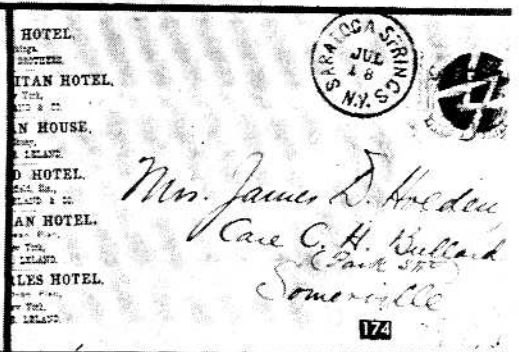 HOTEL,
BROTHERS.
ITAN HOTEL,
AN HOUSE,
LELAND.
D HOTEL.
LELAND & CO.
AN HOTEL.
LELAND.
LES HOTEL.
LELAND.
SARATOGA SPRINGS
JUL
18
N.Y.
Mrs. James D. Holden,
Care C. H. Bullard
Park St.
Somerville
174